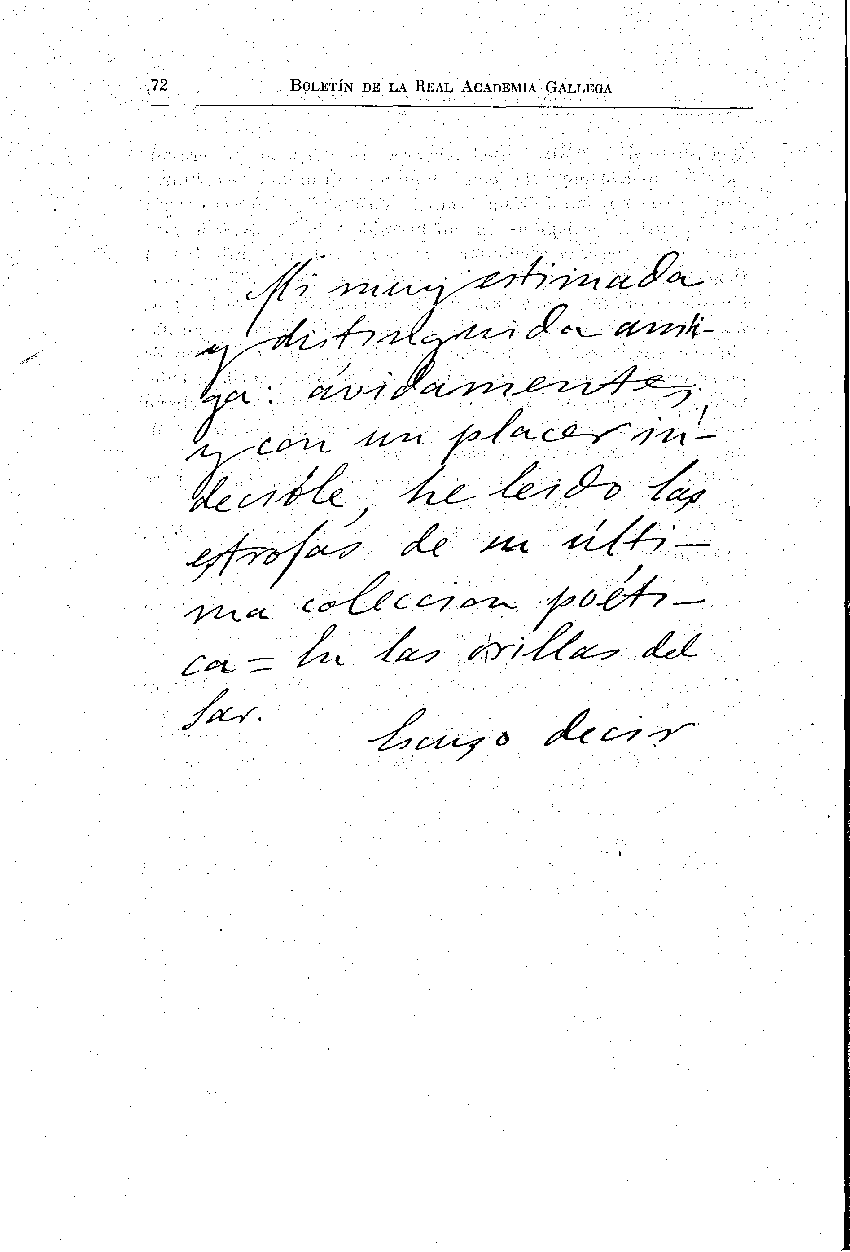 72 BOLETÍN DE LA REAL ACADEMIA GALLEGA
Mi muy estimada
y distinguida ami-
ga: ávidamente,
y con un placer in-
decible, he leido las
estrofas de su últi-
ma coleccion poéti-
ca = En las orillas del
Sar.
Escuso decir